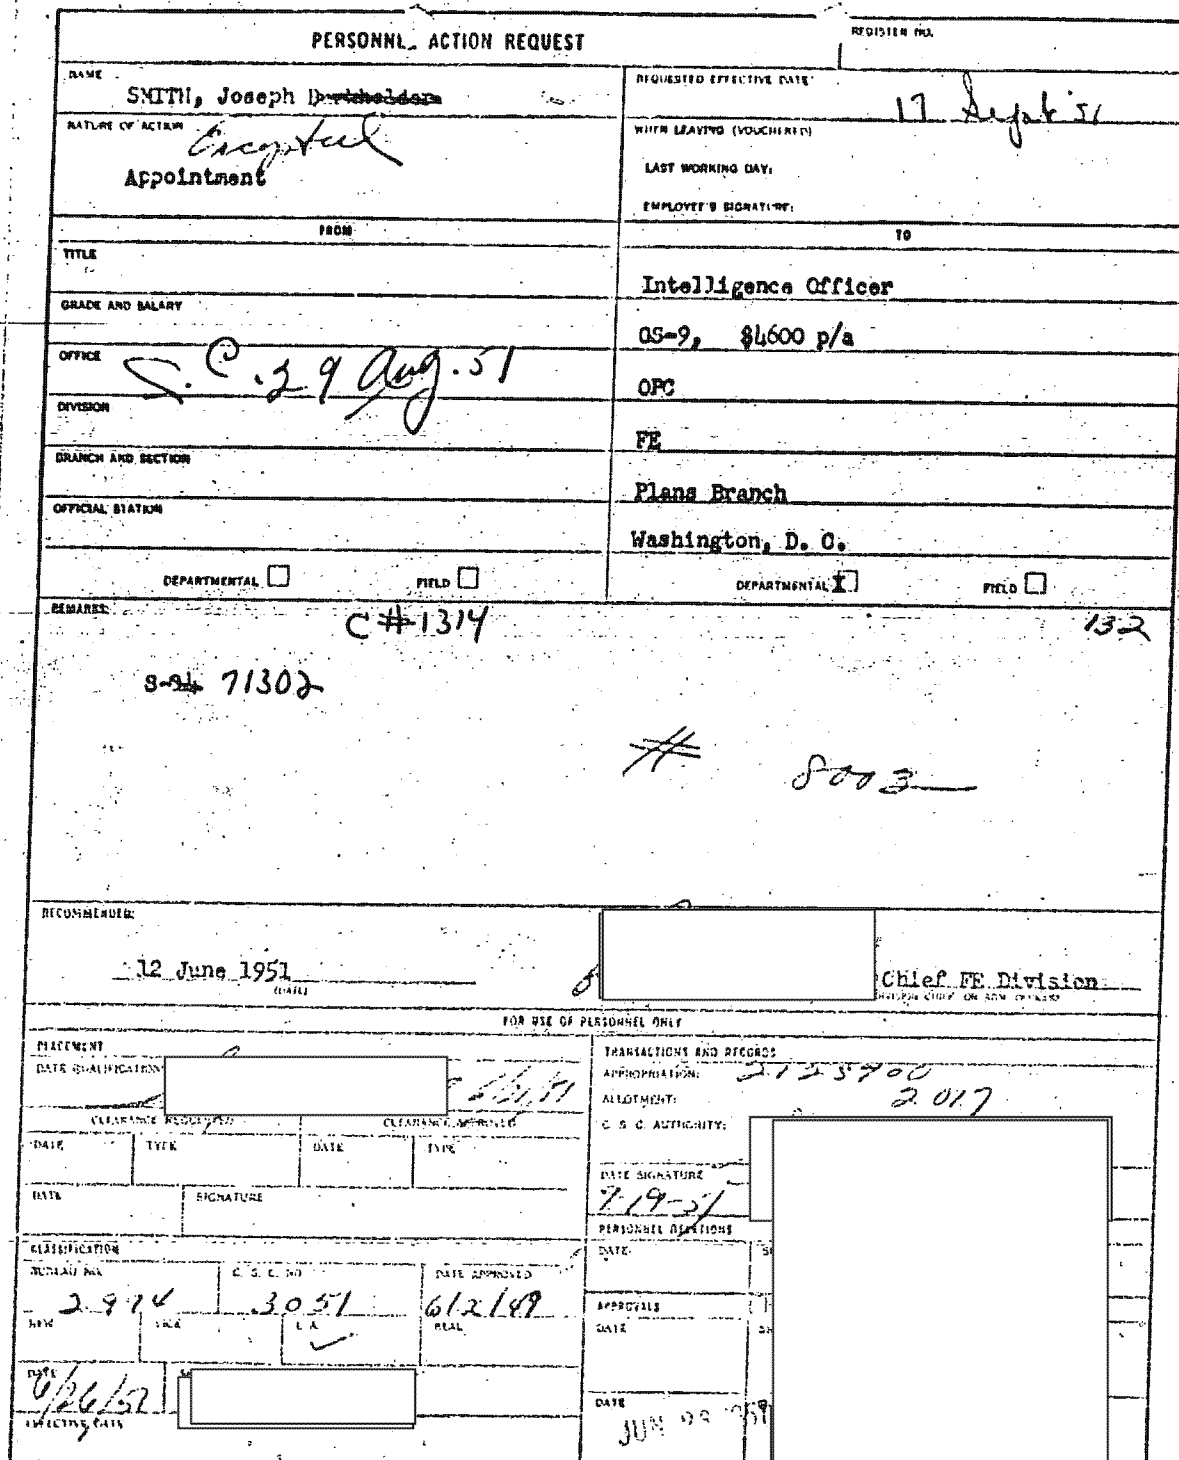 PERSONNL ACTION REQUEST
REGISTER NO.
NAME
SMITH, Joseph
REQUESTED EFFECTIVE DATE:
17 Sept 51
NATURE OF ACTION
Excepted
Appointment
WHEN LEAVING (VOUCHERED)
LAST WORKING DAY:
EMPLOYEE'S SIGNATURE:
FROM
TO
TITLE
Intelligence Officer
GRADE AND SALARY
GS-9, $4600 p/a
OFFICE
S.C. 29 Aug. 51
OPC
DIVISION
FE
BRANCH AND SECTION
Plans Branch
OFFICIAL STATION
Washington, D. C.
DEPARTMENTAL
FIELD
DEPARTMENTAL X
FIELD
REMARKS:
C #1314
132
71302
# 8003
RECOMMENDED:
12 June 1951
(DATE)
Chief FE Division
DIVISION CHIEF OR ADM. OFFICER
FOR USE OF PERSONNEL ONLY
PLACEMENT
DATE QUALIFICATION
CLEARANCE REQUESTED
CLEARANCE APPROVED
DATE TYPE DATE TYPE
DATE SIGNATURE
TRANSACTIONS AND RECORDS
APPROPRIATION: 2125900
ALLOTMENT: 2017
C. S. C. AUTHORITY:
DATE SIGNATURE
7-19-51
PERSONNEL RELATIONS
DATE
CLASSIFICATION
BUREAU NO. C. S. C. NO. DATE APPROVED
2974 3051 6/2/49
NEW VICE I. A. REAL
DATE
EFFECTIVE DATE
APPROVALS
DATE
DATE
JUN